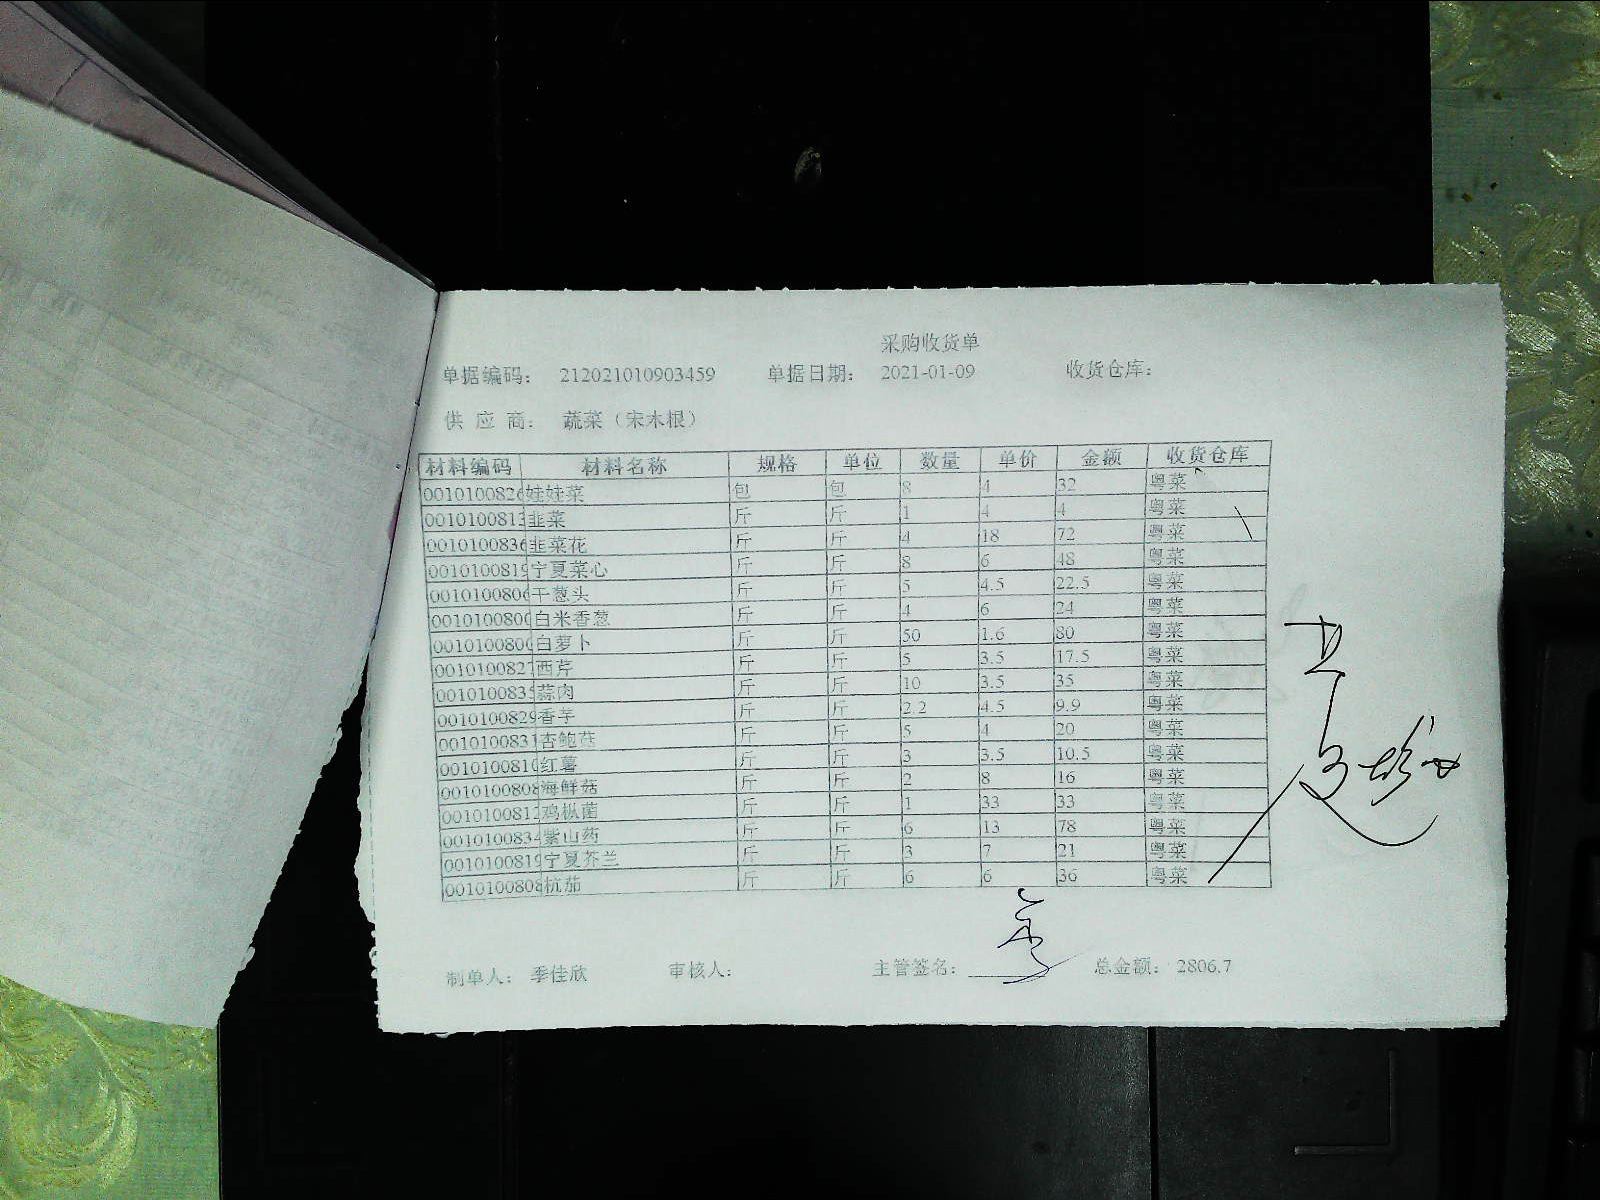 采购收货单
单据编码： 212021010903459 单据日期： 2021-01-09 收货仓库：
供 应 商： 蔬菜（宋木根）
材料编码 材料名称 规格 单位 数量 单价 金额 收货仓库
001010082 娃娃菜 包 包 8 4 32 粤菜
001010081 韭菜 斤 斤 1 4 4 粤菜
001010083 韭菜花 斤 斤 4 18 72 粤菜
001010081 宁夏菜心 斤 斤 8 6 48 粤菜
001010080 干葱头 斤 斤 5 4.5 22.5 粤菜
001010080 白米香葱 斤 斤 4 6 24 粤菜
001010080 白萝卜 斤 斤 50 1.6 80 粤菜
001010082 西芹 斤 斤 5 3.5 17.5 粤菜
001010083 蒜肉 斤 斤 10 3.5 35 粤菜
001010082 香芋 斤 斤 2.2 4.5 9.9 粤菜
001010083 杏鲍菇 斤 斤 5 4 20 粤菜
001010081 红薯 斤 斤 3 3.5 10.5 粤菜
001010080 海鲜菇 斤 斤 2 8 16 粤菜
001010081 鸡枞菌 斤 斤 1 33 33 粤菜
001010083 紫山药 斤 斤 6 13 78 粤菜
001010081 宁夏芥兰 斤 斤 3 7 21 粤菜
001010080 杭茄 斤 斤 6 6 36 粤菜
制单人： 季佳欣 审核人： 主管签名： 总金额： 2806.7